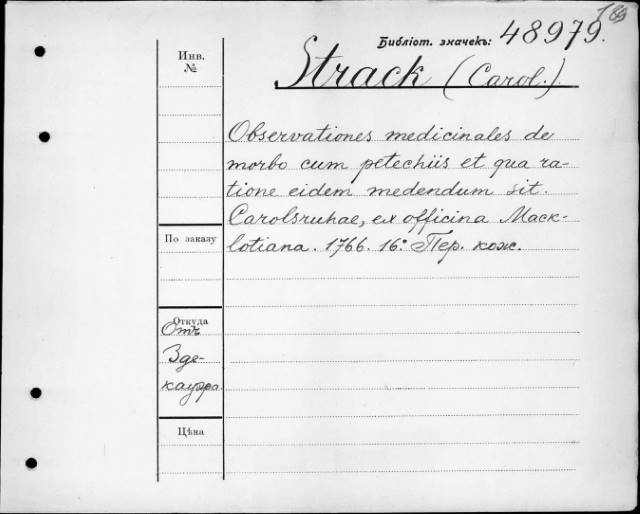 Библіот. значекъ: 48979.
Инв.
№
Strack (Carol.).
Observationes medicinales de
morbo cum petechiis et qua ra-
tione eidem medendum sit.
Carolsruhae, ex officina Mack-
lotiana. 1766. 16°. Пер. кож.
По заказу
Откуда
Отъ
Зде-
кауэра.
Цѣна